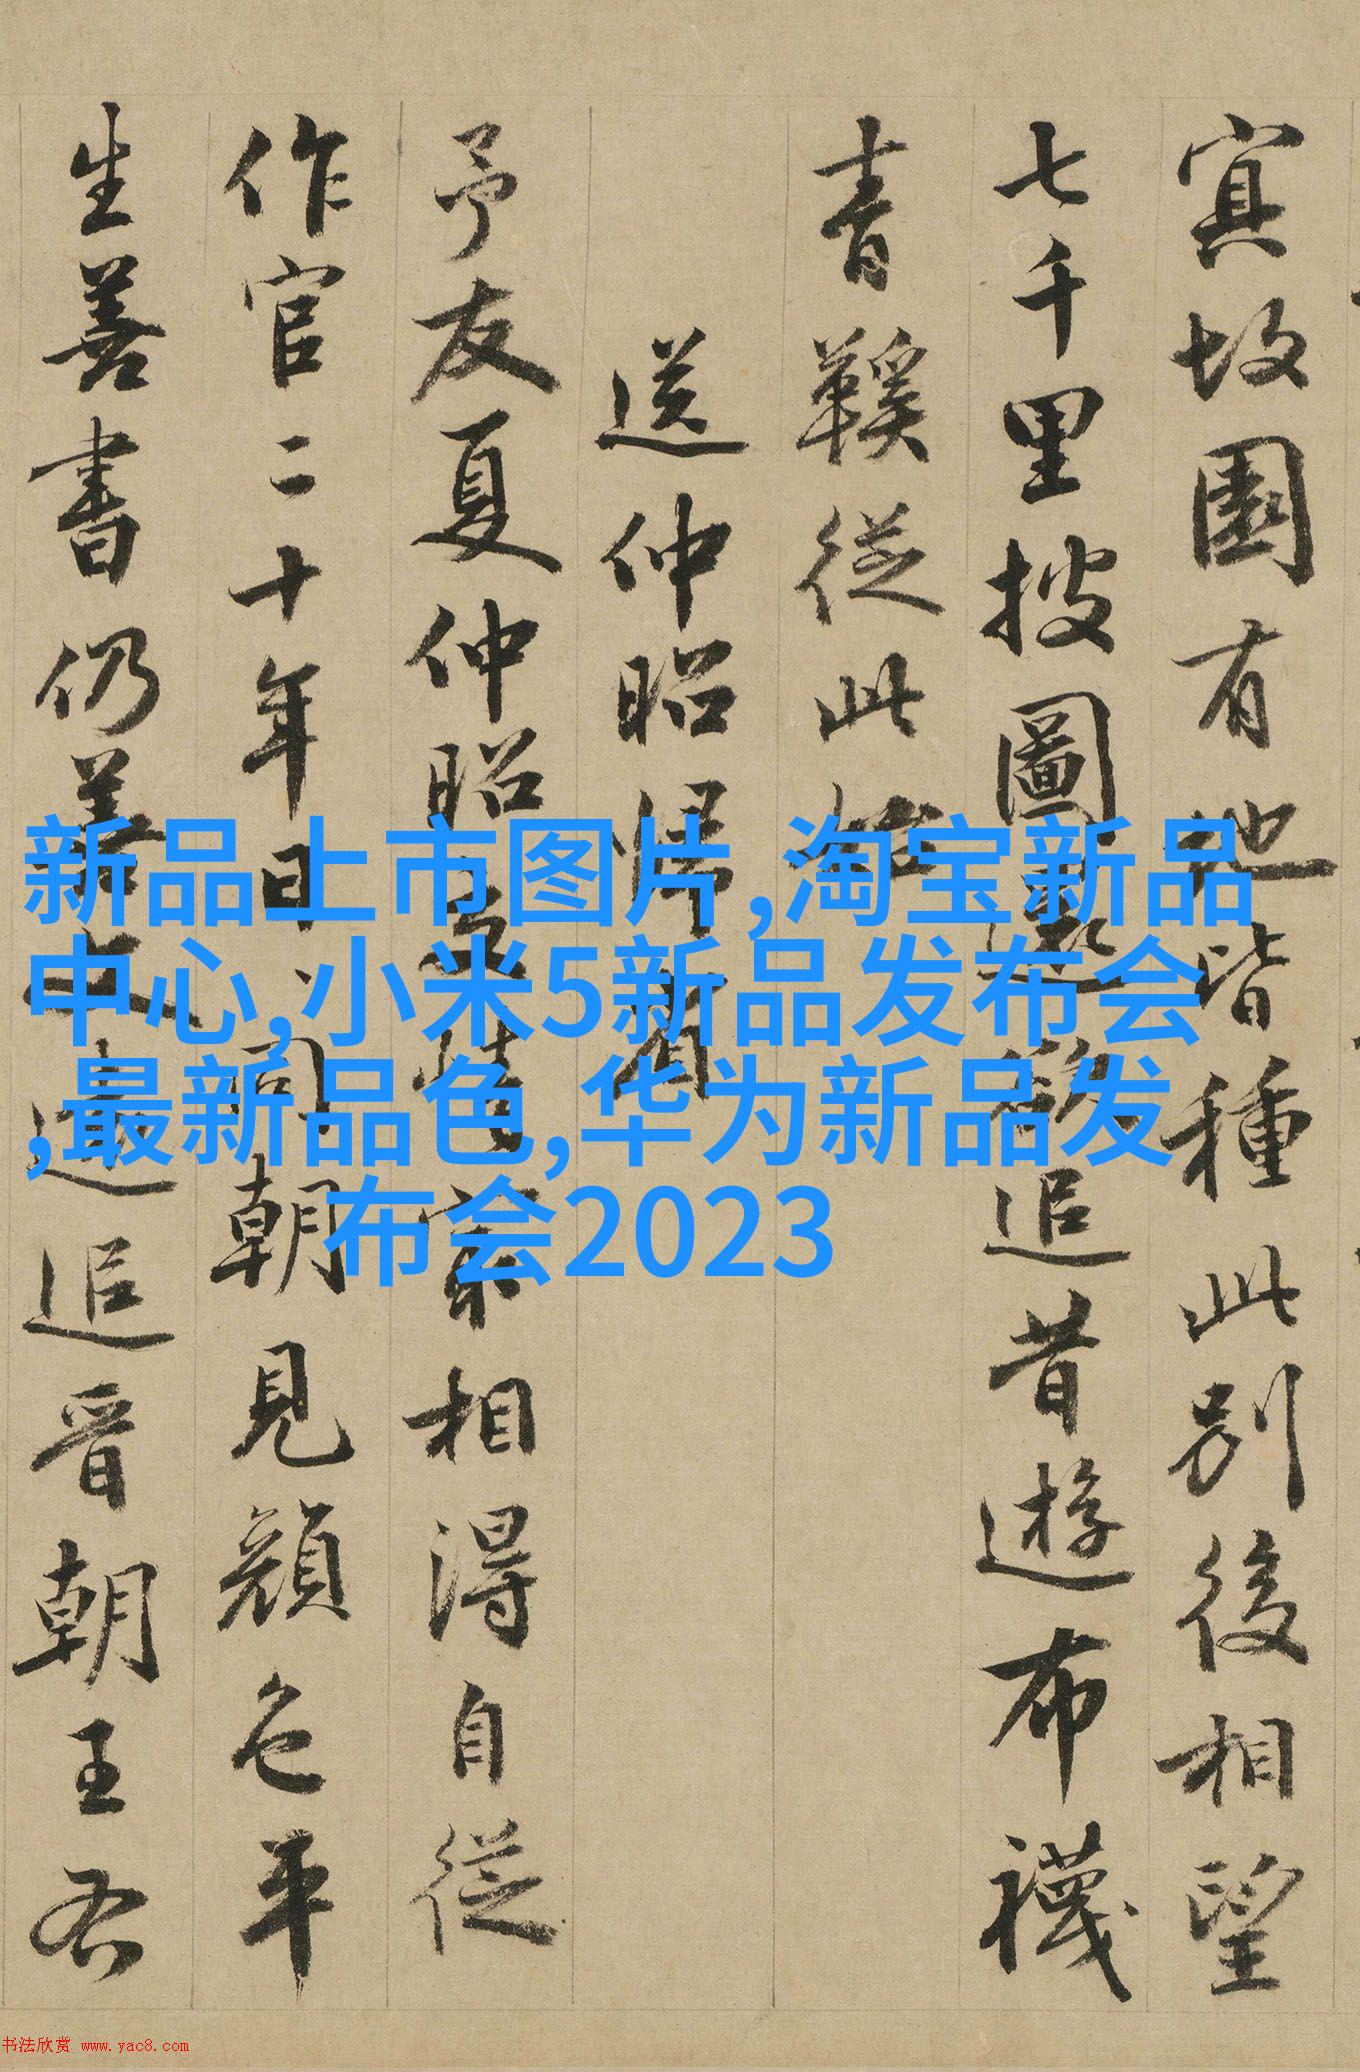 故園有地皆種此別後相望
七千里披圖邈欲追昔遊布襪
青鞵從此始
送仲昭歸省
予友夏仲昭交情最相得自從
作官二十年日日同朝見顏色平
生善書仍善文遠追晉朝王右
新品上市图片,淘宝新品
中心,小米5新品发布会
,最新品色,华为新品发
布会2023
书法欣赏 www.yac8.com